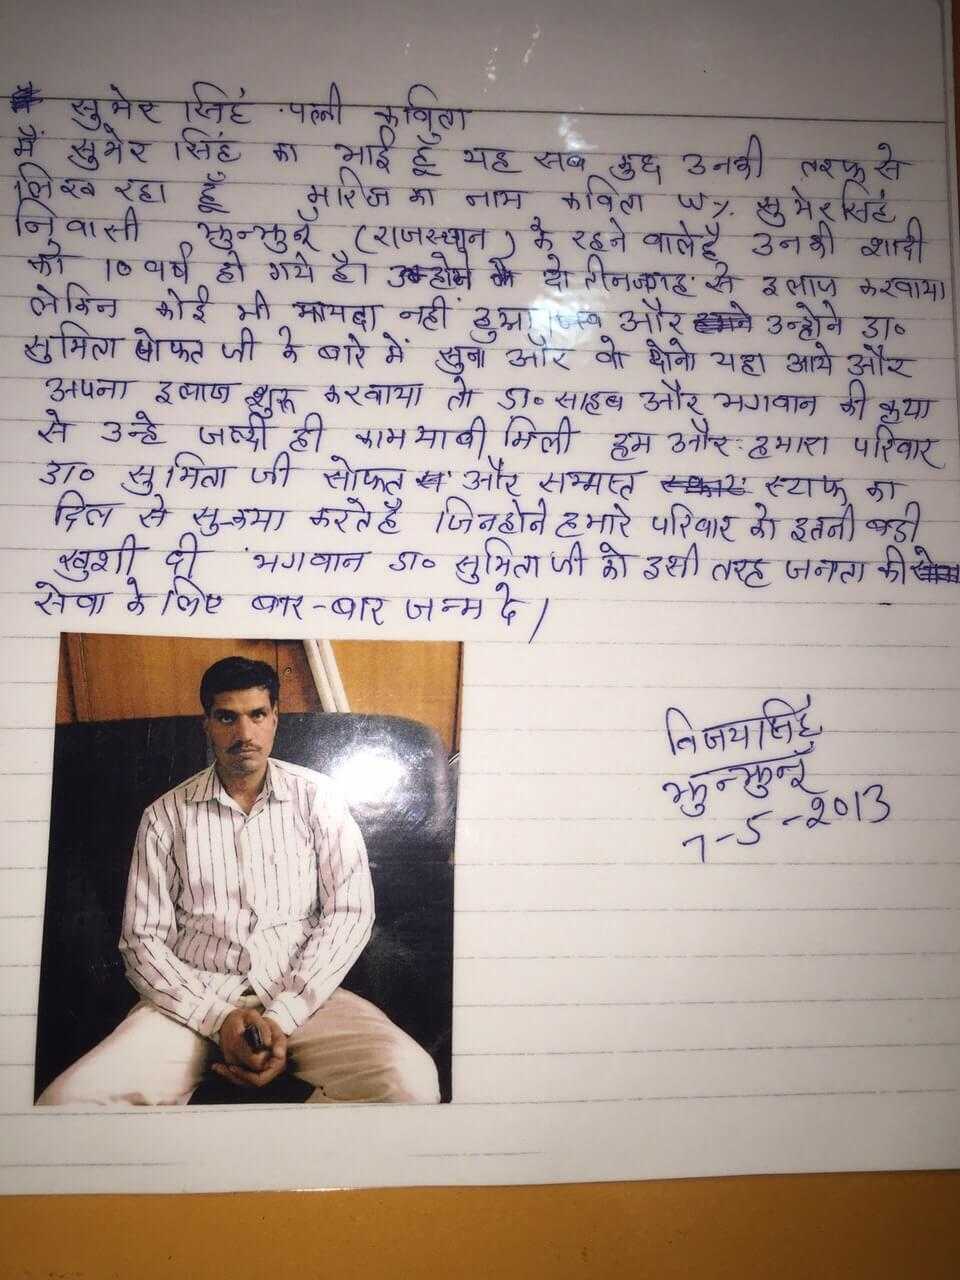 सुमेर सिंह पत्नी कविता
मैं सुमेर सिंह का भाई हूँ यह सब कुछ उनकी तरफ से
लिख रहा हूँ मरिज का नाम कविता W/. सुमेर सिंह
निवासी झुन्झुनूँ (राजस्थान) के रहने वाले है उनकी शादी
को 10 वर्ष हो गये है। उन्होने दो तीन जगह से इलाज करवाया
लेकिन कोई भी फायदा नहीं हुआ और उन्होने डा॰
सुमिता सोफत जी के बारे में सुना और वो दोनो यहा आये और
अपना इलाज शुरू करवाया तो डा॰ साहब और भगवान की कृपा
से उन्हे जल्दी ही कामयाबी मिली हम और हमारा परिवार
डा॰ सुमिता जी सोफत और सम्मस्त स्टाफ का
दिल से करते है जिनहोने हमारे परिवार को इतनी बडी
खुशी दी भगवान डा॰ सुमिता जी को इसी तरह जनता की
सेवा के लिए बार-बार जन्म दे।
विजय सिंह
झुन्झुनूँ
7-5-2013